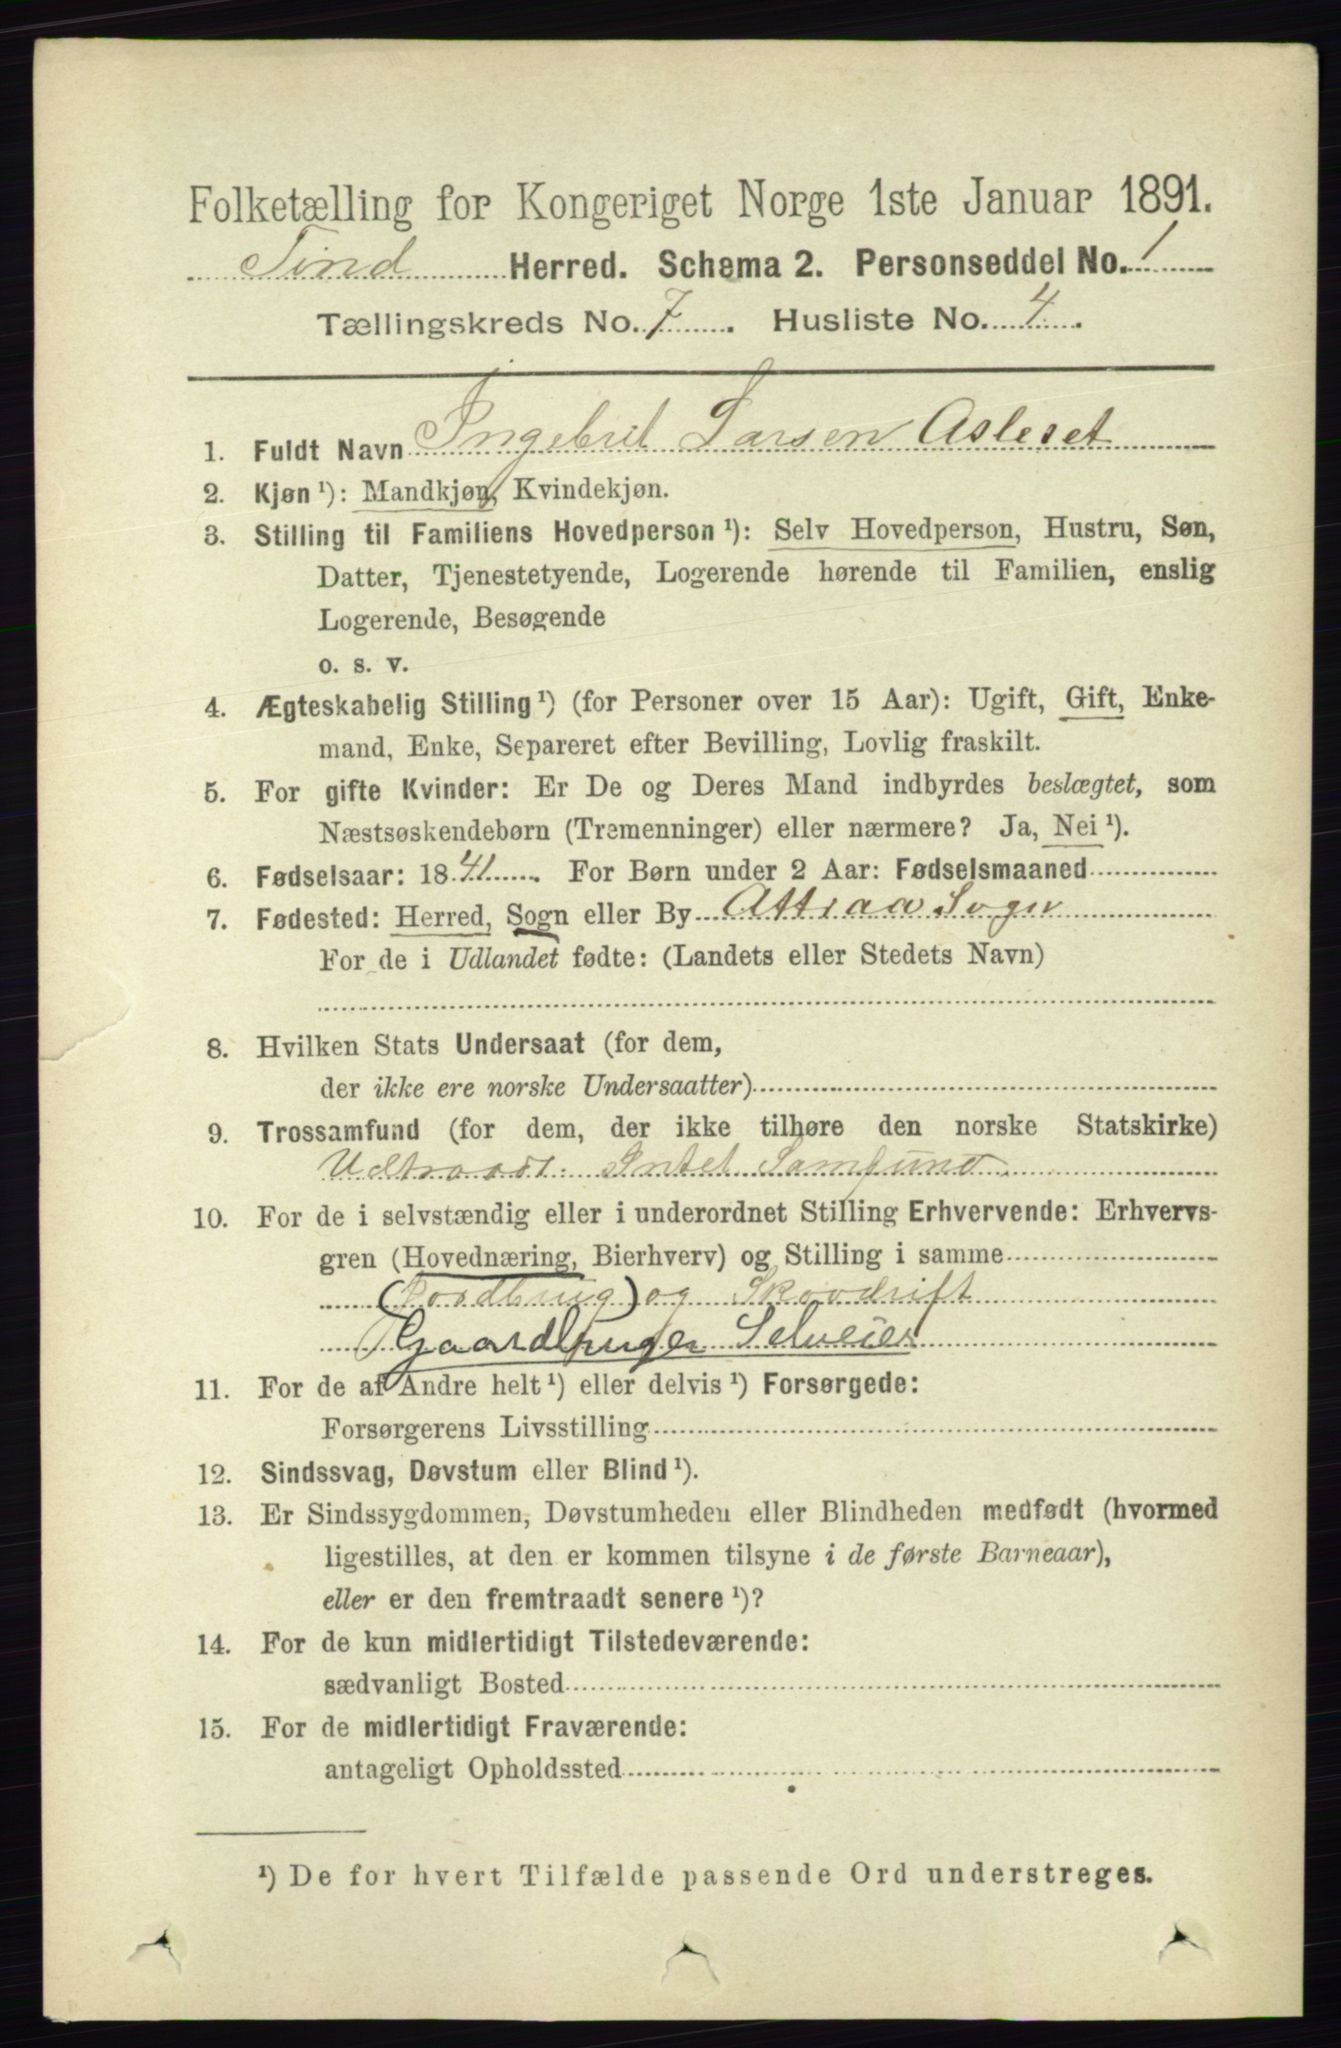 Folketælling for Kongeriget Norge 1ste Januar 1891.
Tind Herred. Schema 2. Personseddel No. 1
Tællingskreds No. 7. Husliste No. 4.
1. Fuldt Navn Ingebrit Larsen Asleset
2. Kjøn ¹): Mandkjøn, Kvindekjøn.
3. Stilling til Familiens Hovedperson ¹): Selv Hovedperson, Hustru, Søn,
Datter, Tjenestetyende, Logerende hørende til Familien, enslig
Logerende, Besøgende
o. s. v.
4. Ægteskabelig Stilling ¹) (for Personer over 15 Aar): Ugift, Gift, Enke-
mand, Enke, Separeret efter Bevilling, Lovlig fraskilt.
5. For gifte Kvinder: Er De og Deres Mand indbyrdes beslægtet, som
Næstsøskendebørn (Tremenninger) eller nærmere? Ja, Nei ¹).
6. Fødselsaar: 1841. For Børn under 2 Aar: Fødselsmaaned
7. Fødested: Herred, Sogn eller By Attraa Sogn
For de i Udlandet fødte: (Landets eller Stedets Navn)
8. Hvilken Stats Undersaat (for dem,
der ikke ere norske Undersaatter)
9. Trossamfund (for dem, der ikke tilhøre den norske Statskirke)
Udtraadt. Intet Samfund
10. For de i selvstændig eller i underordnet Stilling Erhvervende: Erhvervs-
gren (Hovednæring, Bierhverv) og Stilling i samme
(Jordbrug) og Skovdrift
Gaardbruger Selveier
11. For de af Andre helt ¹) eller delvis ¹) Forsørgede:
Forsørgerens Livsstilling
12. Sindssvag, Døvstum eller Blind ¹).
13. Er Sindssygdommen, Døvstumheden eller Blindheden medfødt (hvormed
ligestilles, at den er kommen tilsyne i de første Barneaar),
eller er den fremtraadt senere ¹)?
14. For de kun midlertidigt Tilstedeværende:
sædvanligt Bosted
15. For de midlertidigt Fraværende:
antageligt Opholdssted
¹) De for hvert Tilfælde passende Ord understreges.